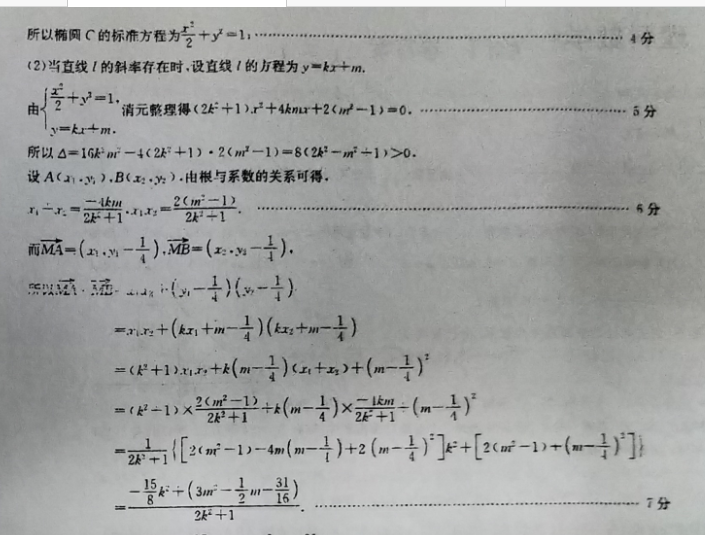 所以椭圆 C 的标准方程为 x²/2 + y² = 1; …… 4 分
(2)当直线 l 的斜率存在时,设直线 l 的方程为 y=kx+m.
由{ x²/2 + y² = 1, y=kx+m. 消元整理得(2k²+1)x²+4kmx+2(m²-1)=0. …… 5 分
所以 Δ=16k²m²-4(2k²+1)·2(m²-1)=8(2k²-m²+1)>0.
设 A(x₁,y₁),B(x₂,y₂),由根与系数的关系可得,
x₁+x₂=-4km/(2k²+1), x₁x₂=2(m²-1)/(2k²+1). …… 6 分
而MA=(x₁,y₁-1/4),MB=(x₂,y₂-1/4),
所以MA·MB=x₁x₂+(y₁-1/4)(y₂-1/4)
=x₁x₂+(kx₁+m-1/4)(kx₂+m-1/4)
=(k²+1)x₁x₂+k(m-1/4)(x₁+x₂)+(m-1/4)²
=(k²+1)×2(m²-1)/(2k²+1)+k(m-1/4)×-4km/(2k²+1)+(m-1/4)²
=1/(2k²+1){[2(m²-1)-4m(m-1/4)+2(m-1/4)²]k²+[2(m²-1)+(m-1/4)²]}
=(-15/8 k²+(3m²-1/2 m-31/16))/(2k²+1). …… 7 分